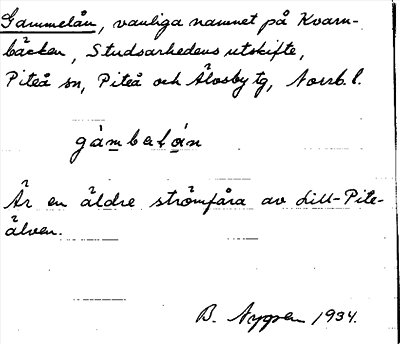 Gammelån, vanliga namnet på Kvarn-
bäcken, Studsarhedens utskifte,
Piteå sn, Piteå och Älvsby tg, Norrb. l.
Är en äldre strömfåra av Lill-Pite-
älven.
B. 1934.